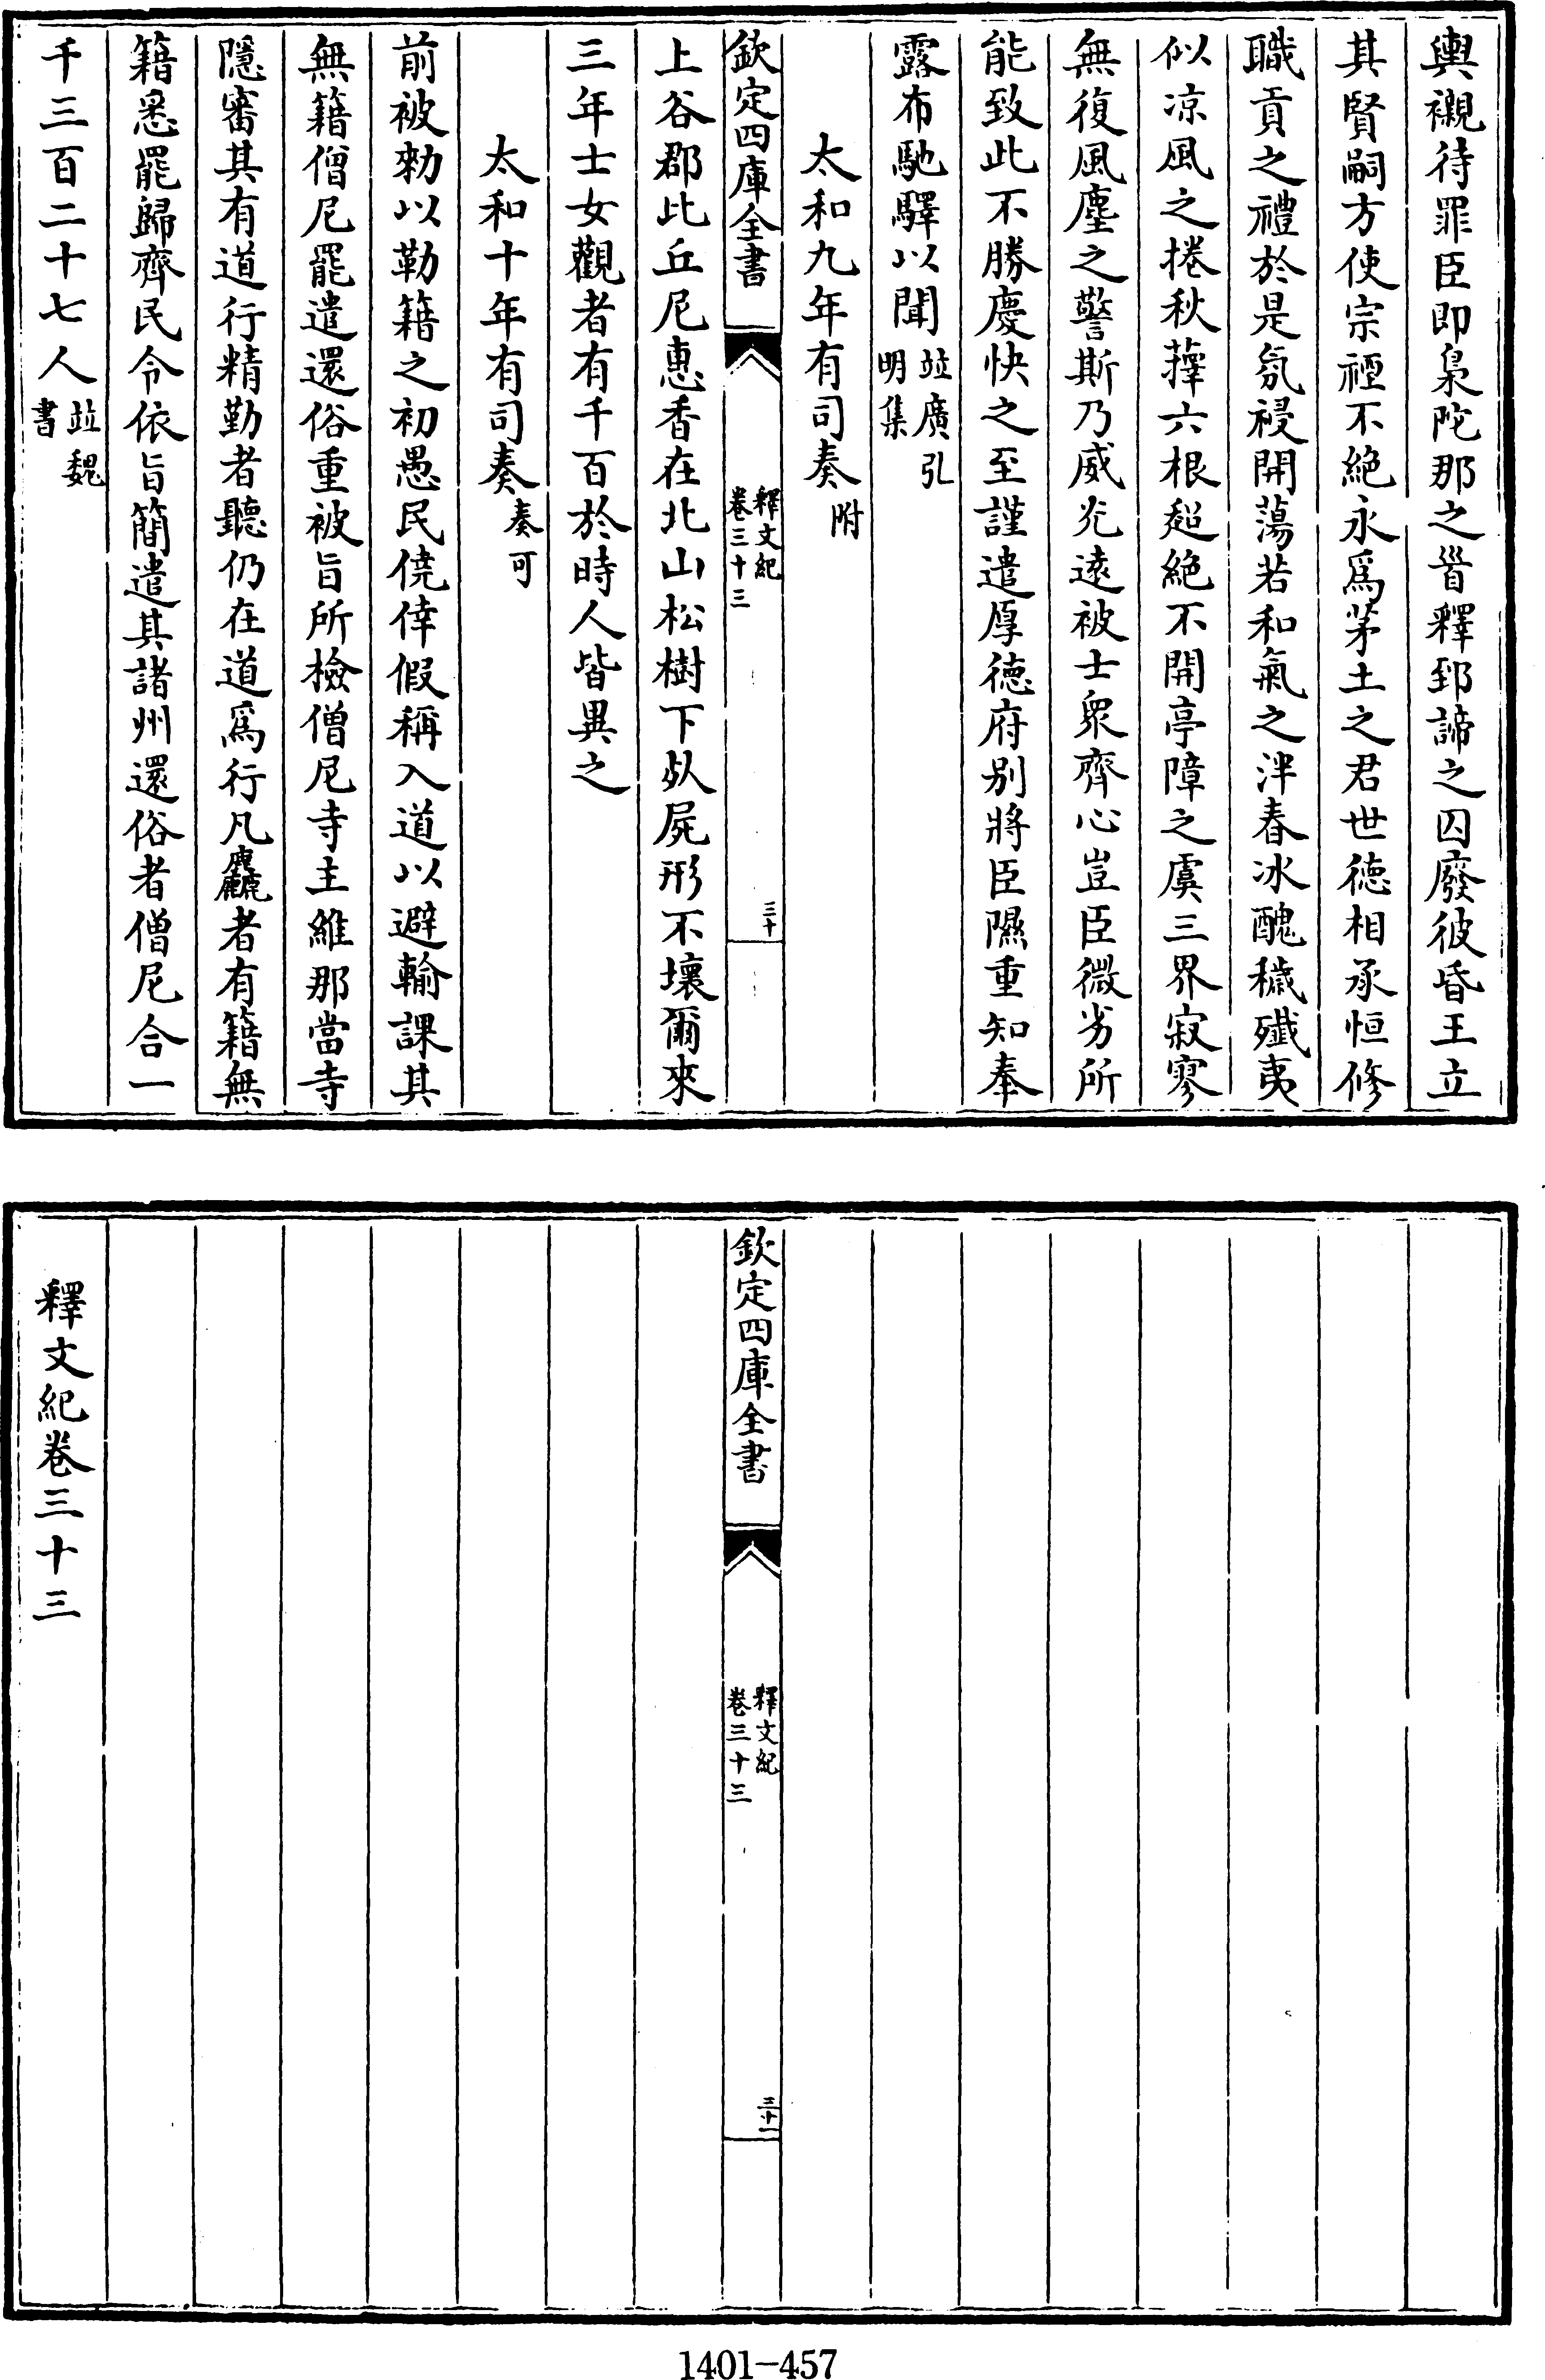 輿櫬待罪臣即梟陀那之首釋郅諦之囚廢彼昏王立
其賢嗣方使宗禋不絶永爲茅土之君世德相承恒修
職貢之禮於是氛祲開蕩若和氣之泮春冰醜穢殲夷
似凉風之捲秋蘀六根超絶不開亭障之虞三界寂寥
無復風塵之警斯乃威光遠被士衆齊心豈臣微劣所
能致此不勝慶快之至謹遣厚德府别將臣隰重知奉
露布馳驛以聞竝廣弘
明集
太和九年有司奏附
欽定四庫全書
釋文紀
卷三十三
三十
上谷郡比丘尼惠香在北山松樹下死屍形不壞爾來
三年士女觀者有千百於時人皆異之
太和十年有司奏奏可
前被勑以勒籍之初愚民僥倖假稱入道以避輸課其
無籍僧尼罷遣還俗重被旨所檢僧尼寺主維那當寺
隱審其有道行精勤者聽仍在道爲行凡麤者有籍無
籍悉罷歸齊民今依旨簡遣其諸州還俗者僧尼合一
千三百二十七人竝魏
書
欽定四庫全書
釋文紀
卷三十三
三十一
釋文紀卷三十三
1401-457